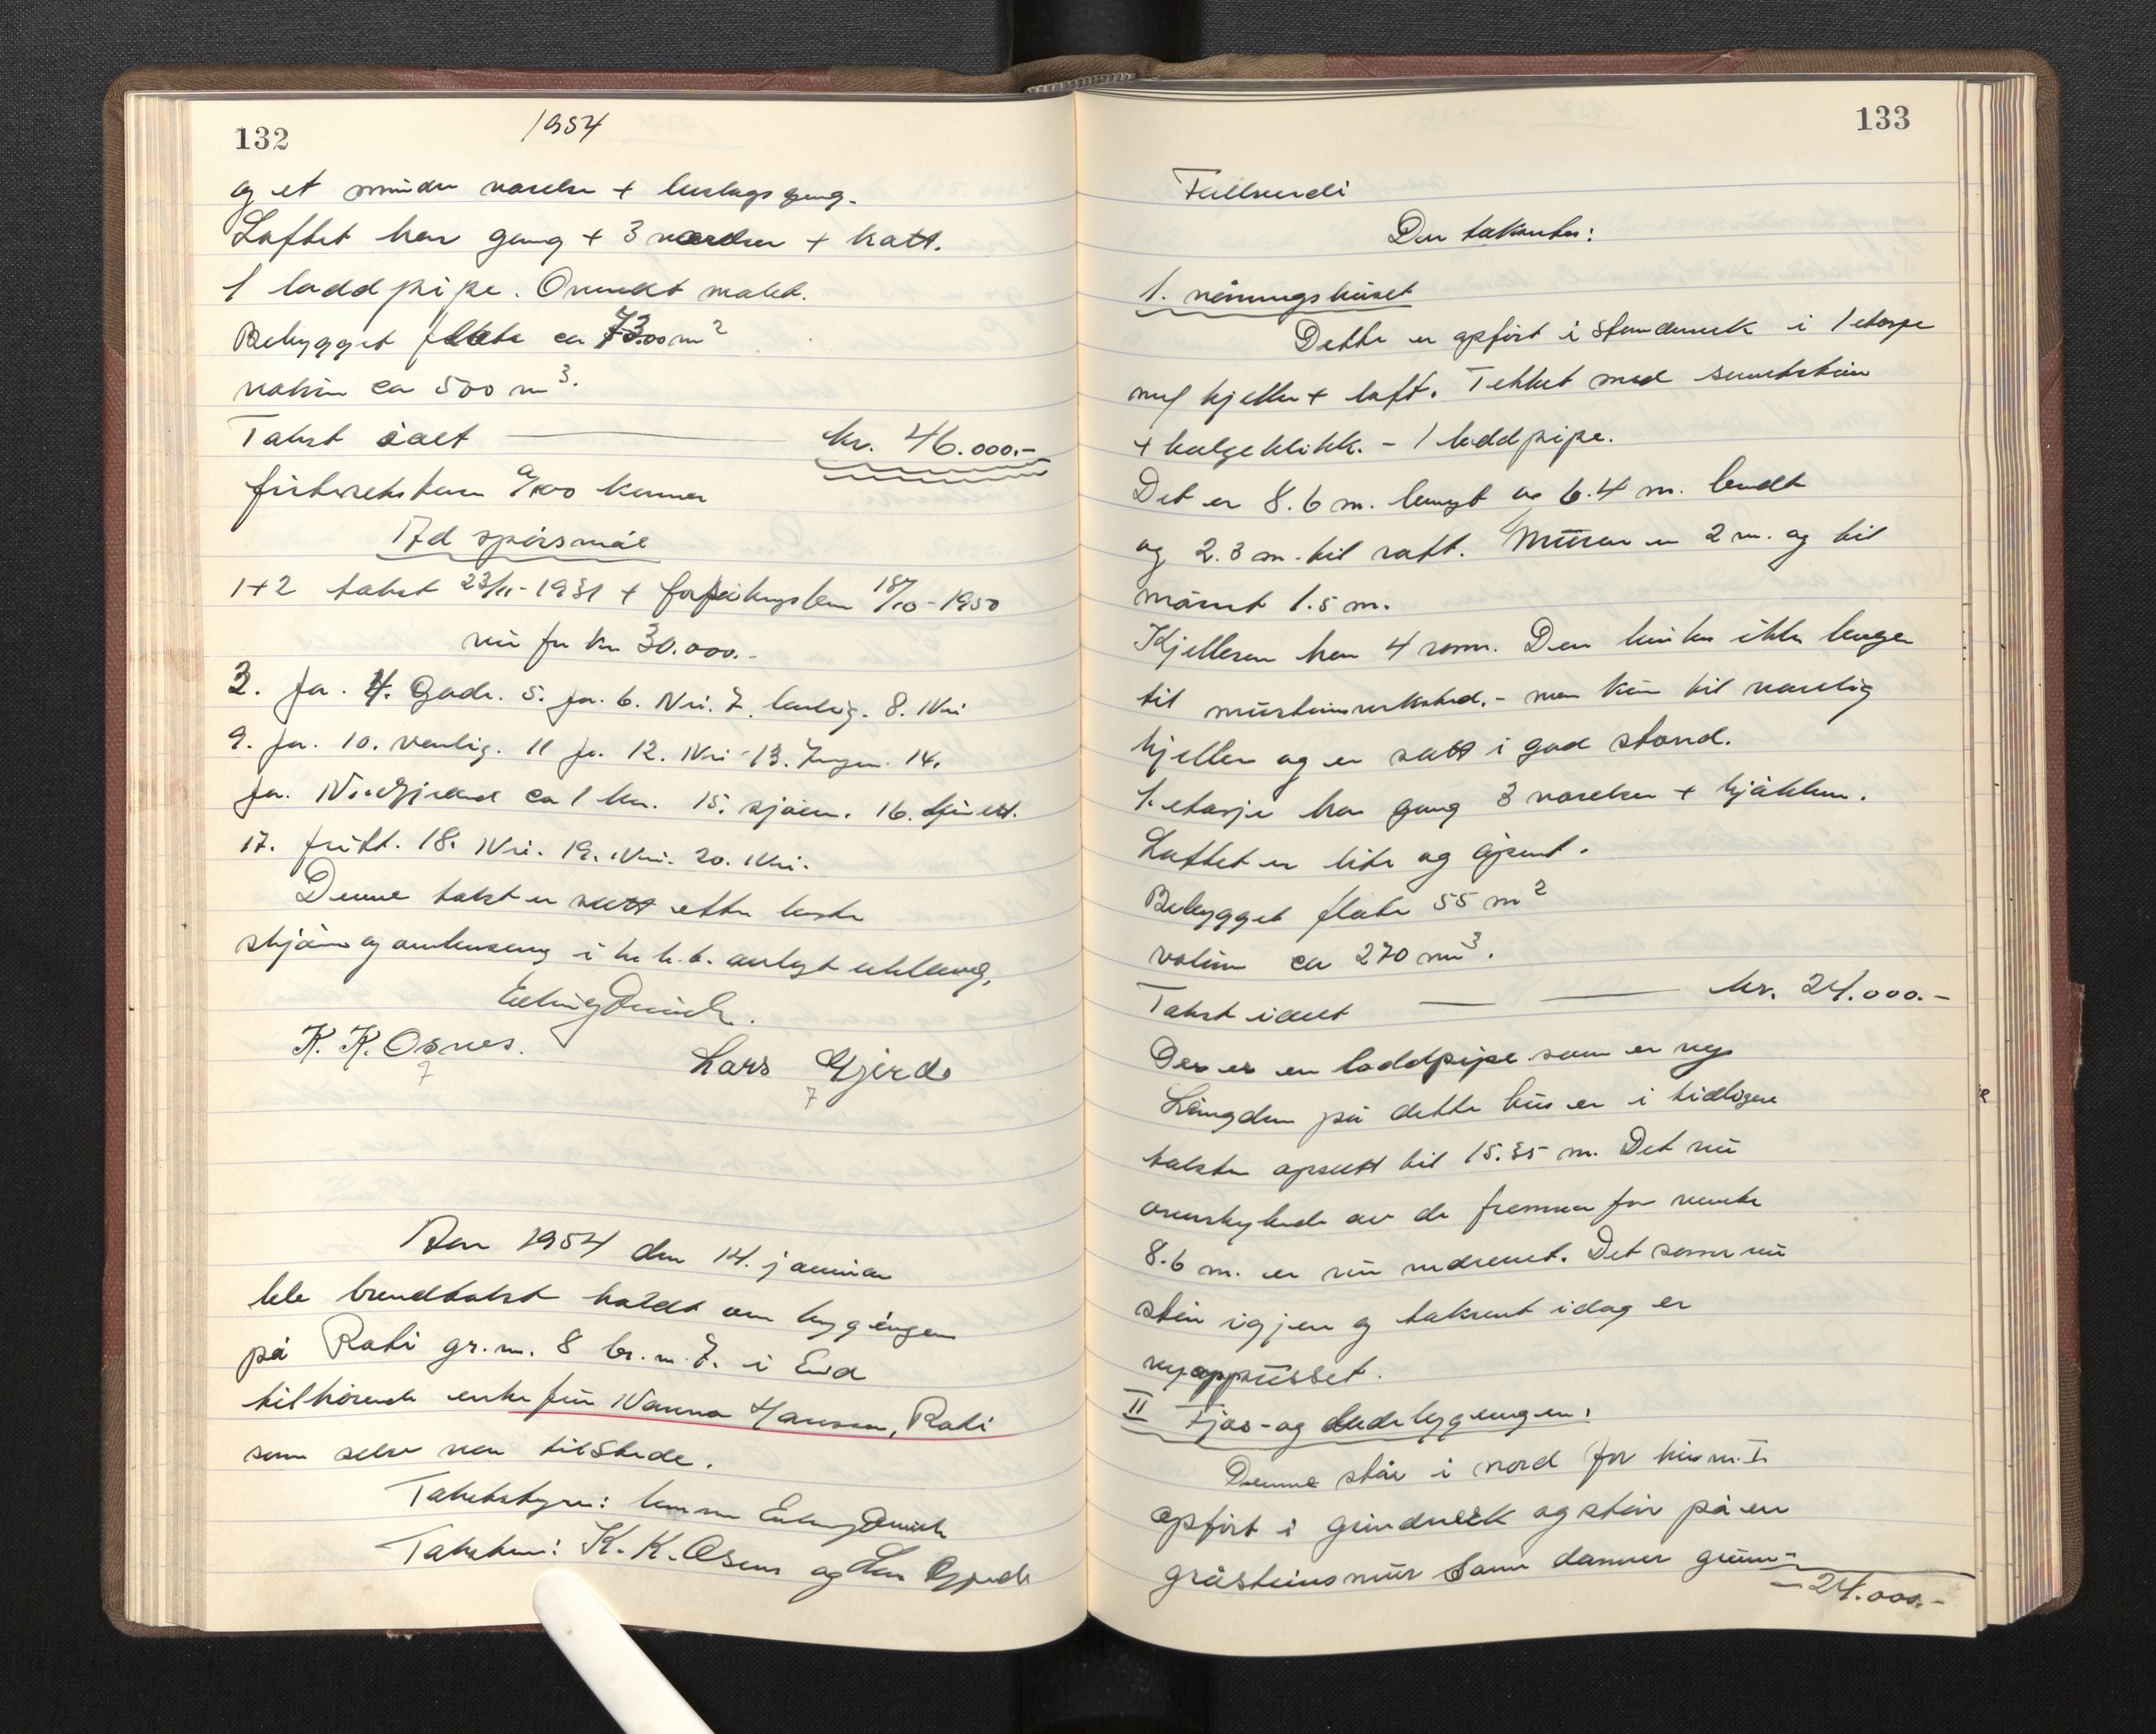 132
1954
og et mindre værelse + buslagsgang.
Loftet har gang + 3 værelser + kott.
1 loddpipe. Overalt malt.
Bebygget flate ca 73.00 m²
volum ca 500 m³.
Takst ialt — kr. 46.000.-
a/100 kroner
Ad spørsmål
1+2 takst 23/11-1931 + 18/10-1950
nu for kr 30.000.-
3. Ja. 4. Gode. 5. Ja. 6. Nei. 7. 8. Nei
9. Ja. 10. vanlig. 11 Ja. 12. Nei 13. Ingen. 14.
Ja. ca 1 km. 15. sjøen. 16.
17. fritt. 18. Nei. 19. Nei. 20. Nei.
Denne takst er satt etter beste
skjønn og i h. h. t. avlagt
K. K. Osnes.
7
Lars Gjerde
7
Aar 1954 den 14. januar
ble brandtakst holdt over bygningen
på gr. nr. 8 br. nr. 7. i
tilhørende enke fru Nanna Hanssen,
som selv var tilstede.
Takstbestyrer:
Takstmenn: K. K. Osnes og Lars Gjerde
133
Fullverdi
Der taksertes:
1. våningshuset
Dette er opført i stenderverk i 1 etasje
med kjeller + loft. Tekket med sementstein
+ bølgeblikk. - 1 loddpipe.
Det er 8.6 m. langt og 6.4 m. bredt
og 2.3 m. til raft. Muren er 2 m. og til
mønet 1.5 m.
Kjelleren har 4 rom. Den brukes ikke lenger
til - men kun til vanlig
kjeller og er satt i god stand.
1. etasje har gang 3 værelser + kjøkken.
Loftet er lite og åpent.
Bebygget flate 55 m²
volum ca 270 m³.
Takst ialt — — kr. 24.000.-
Der er en loddpipe som er ny
Lengden på dette hus er i tidligere
takster opsatt til 15.35 m. Det nu
overskytende av de fremmer for nevnte
8.6 m. er nu nedrevet. Det som nu
står igjen og taksert idag er
nyoppusset.
II Fjøs- og løebygningen:
Denne står i nord for hus nr. I
opført i grindverk og står på en
gråsteinsmur som danner
- 24.000.-